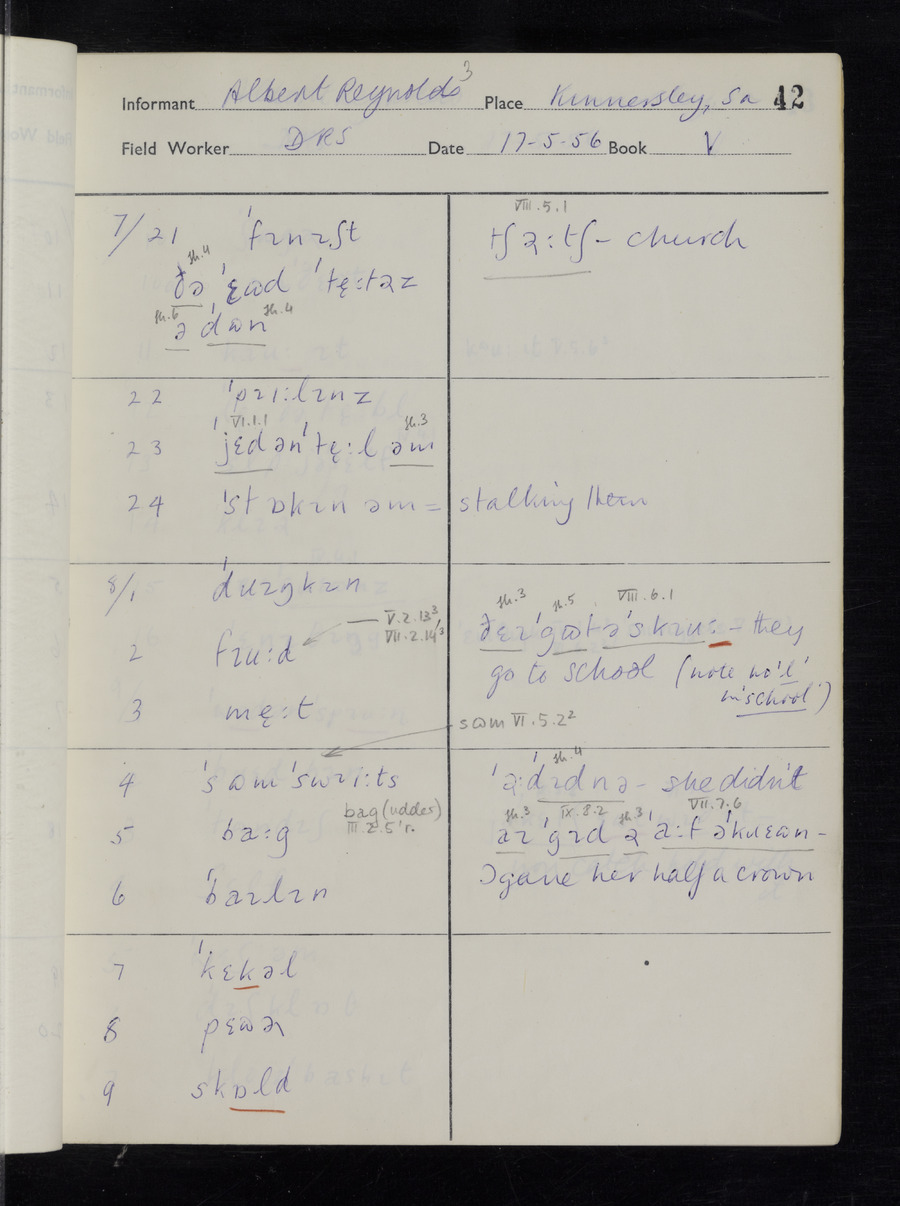 Informant Albert Reynolds³ Place Kinnersley, Sa 42
Field Worker DRS Date 17-5-56 Book V
7/21 ˈfɪnɪʃt
sh.4
ðə ˈɛɷd ˈtę:təɹz
sh.6 sh.4
ə ˈdɷn
VIII.5.1
tʃɚ:tʃ - church
22 ˈpəɪ:lɪnz
VI.1.1 sh.3
23 ˈjɛdənˈtę:l əm
24 ˈstɒkɪn əm = stalking them
8/1 ˈdɹɪŋkɪn
2 fɪu:d
V.2.13³
VII.2.14³
3 mę:t
sh.3 sh.5 VIII.6.1
ðɛɪ ˈgɷt əˈskɪu: - they
go to school (note no 'l'
in 'school')
sɷm VI.5.2²
4 ˈsɷmˈswɪi:ts
5 ba:g
bag (udder)
III.2.5 r.
6 ˈbəɪlɪn
sh.4
ˈɚ:ˈdɪdnə - she didn't
sh.3 IX.8.2 sh.3 VII.7.6
aɪ ˈgɪd ɚ a:f əˈkɹɛɷn -
I gave her half a crown
7 ˈkɛkəl
8 pɛɷɚ
9 skɒld